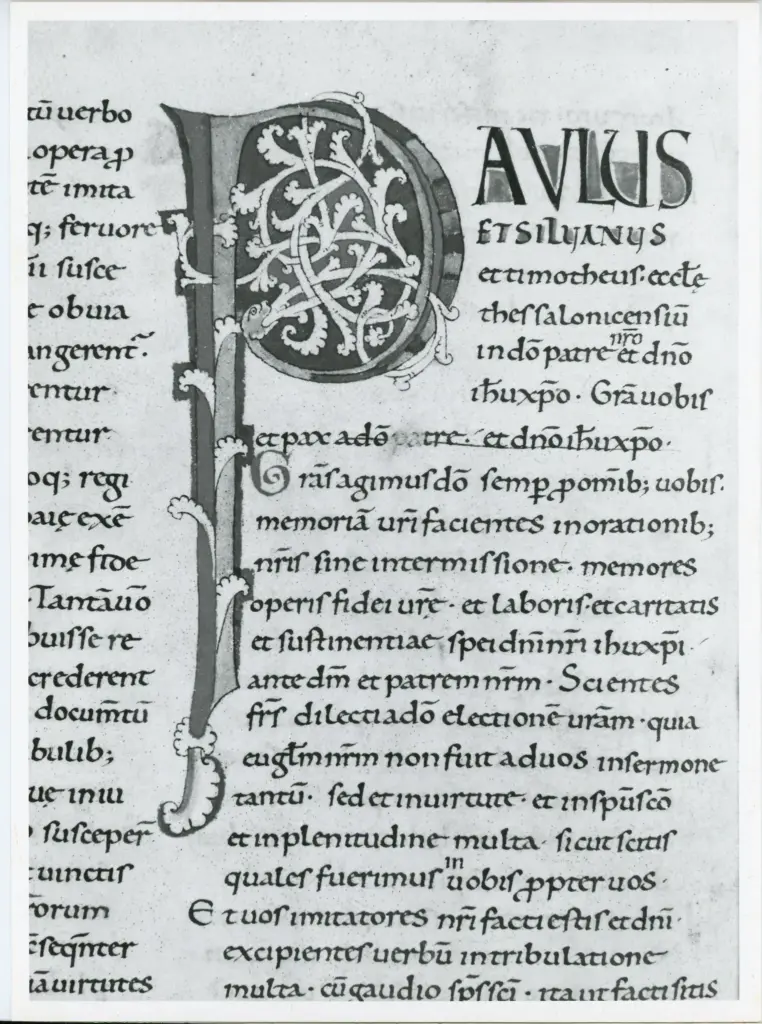 tū uerbo
opera ꝓ
tē imita
q; feruore
ii susce
e obuia
angerent̄.
entur
entur
oq; regi
aię exē
imę fide
Tantāuō
buisse re
crederent
documtū
bulib;
ue iniu
suscep̄
uinctis
orum
seqn̄ter
iāuirtutes
PAVLUS
ET SILUANUS
et timotheus. eccłę
thessalonicensiū
in dō patre nr̄o et dn̄o
ih̄u xp̄o. Grā uobis
et pax a dō patre. et dn̄o ih̄u xp̄o.
Grās agimus dō semꝑ ꝓ om̄ib; uobis.
memoriā uri facientes in orationib;
nr̄is sine intermissione. memores
operis fidei urę̄. et laboris. et caritatis
et sustinentiae spei dn̄i nr̄i ihu xp̄i.
ante dm̄ et patrem nr̄m. Scientes
fr̄s dilecti a dō electionē urām. quia
eugłm nr̄m non fuit ad uos in sermone
tantū. sed et in uirtute. et in sp̄u scō
et in plenitudine multa. sicut scitis
quales fuerimus in uobis ꝓpter uos.
Et uos imitatores nr̄i facti estis et dn̄i.
excipientes uerbū in tribulatione
multa. cū gaudio sp̄s sc̄i. ita ut facti sitis